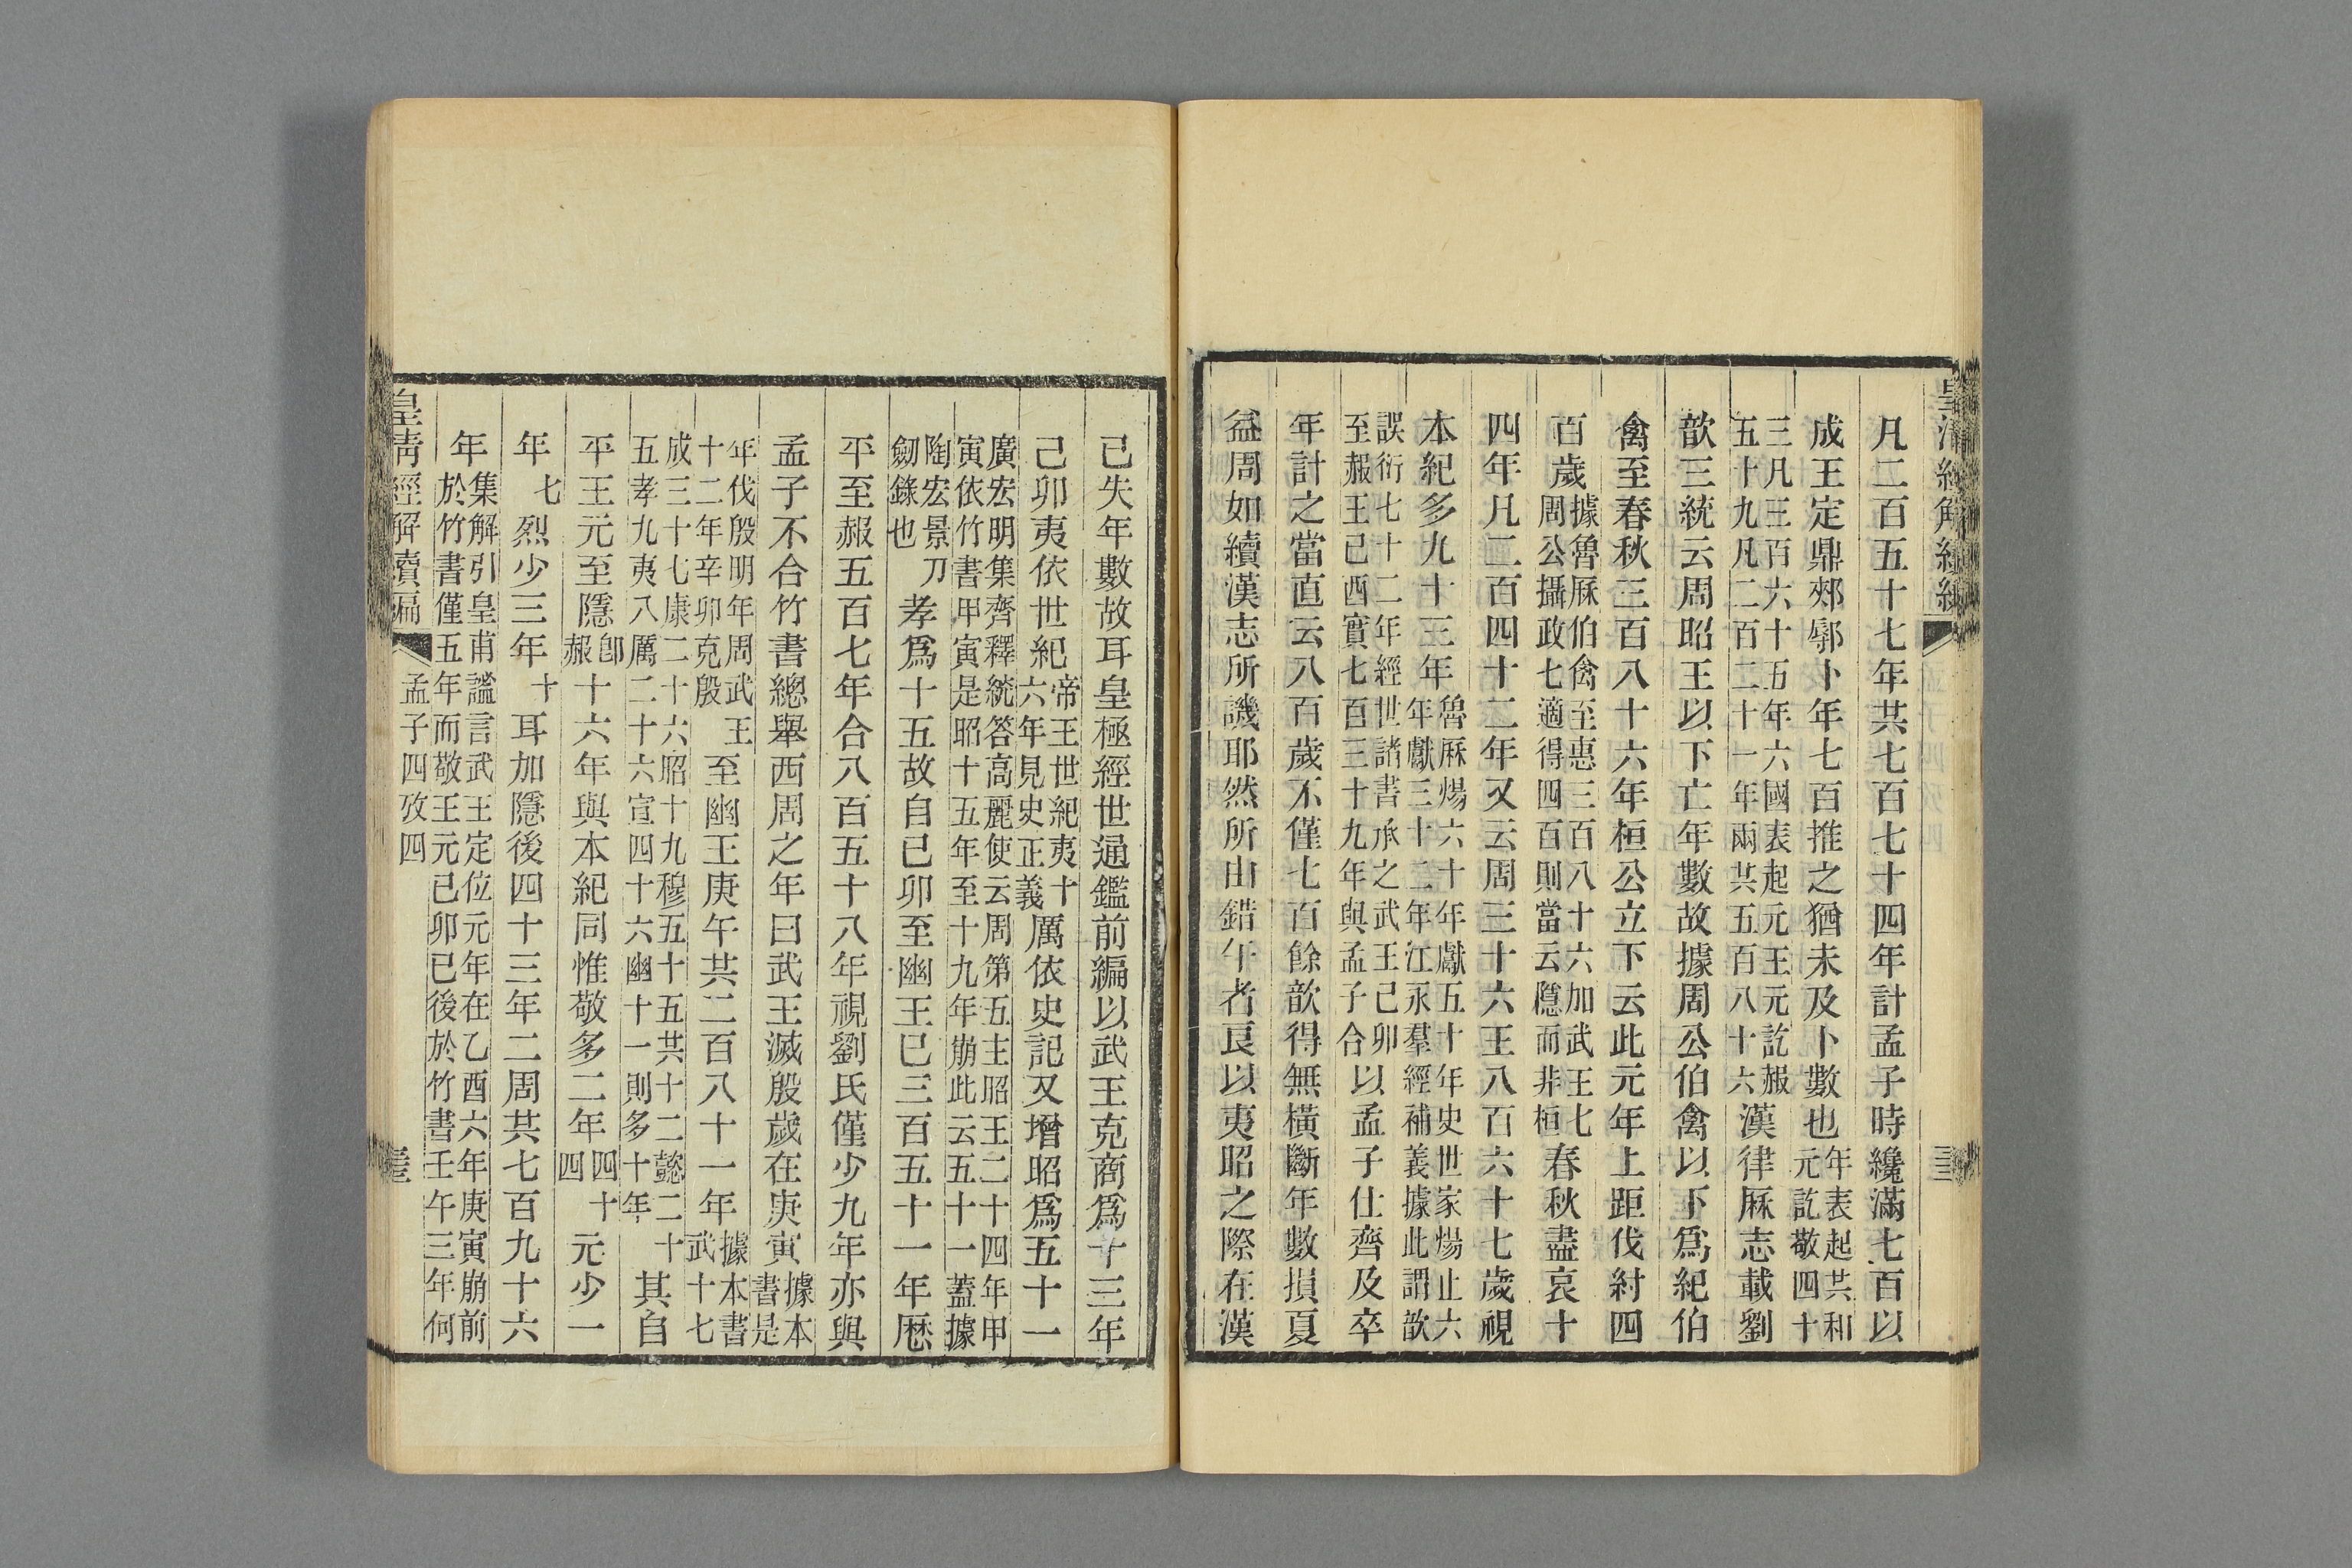 凡二百五十七年共七百七十四年計孟子時纔滿七百以
成王定鼎郟鄏卜年七百推之猶未及卜數也年表起共和元訖敬四十
三凡三百六十五年六國表起元王元訖赧五十九凡二百二十一年兩共五百八十六漢律厤志載劉
歆三統云周昭王以下亡年數故據周公伯禽以下爲紀伯
禽至春秋三百八十六年桓公立下云此元年上距伐紂四
百歲據魯厤伯禽至惠三百八十六加武王七周公攝政七適得四百則當云隱而非桓春秋盡哀十
四年凡二百四十二年又云周三十六王八百六十七歲視
本紀多九十三年魯厤煬六十年獻五十年史世家煬止六年獻三十二年江永羣經補義據此謂歆
誤衍七十二年經世諸書承之武王己卯至赧王己酉實七百三十九年與孟子合以孟子仕齊及卒
年計之當直云八百歲不僅七百餘歆得無橫斷年數損夏
益周如續漢志所譏耶然所由錯午者良以夷昭之際在漢
已失年數故耳皇極經世通鑑前編以武王克商爲十三年
己卯夷依世紀帝王世紀夷十六年見史正義厲依史記又增昭爲五十一
廣宏明集齊釋統答高麗使云周第五主昭王二十四年甲寅依竹書甲寅是昭十五年至十九年崩此云五十一蓋據
陶宏景刀劒錄也孝爲十五故自己卯至幽王已三百五十一年厯
平至赧五百七年合八百五十八年視劉氏僅少九年亦與
孟子不合竹書總舉西周之年曰武王滅殷歲在庚寅據本書是
年伐殷明年周武王十二年辛卯克殷至幽王庚午共二百八十一年據本書武十七
成三十七康二十六昭十九穆五十五共十二懿二十五孝九夷八厲二十六宣四十六幽十一則多十年其自
平王元至隱卽赧十六年與本紀同惟敬多二年四十四元少一
年七烈少三年十耳加隱後四十三年二周共七百九十六
年集解引皇甫謐言武王定位元年在乙酉六年庚寅崩前於竹書僅五年而敬王元己卯已後於竹書壬午三年何
皇淸經解續編
孟子四攷四